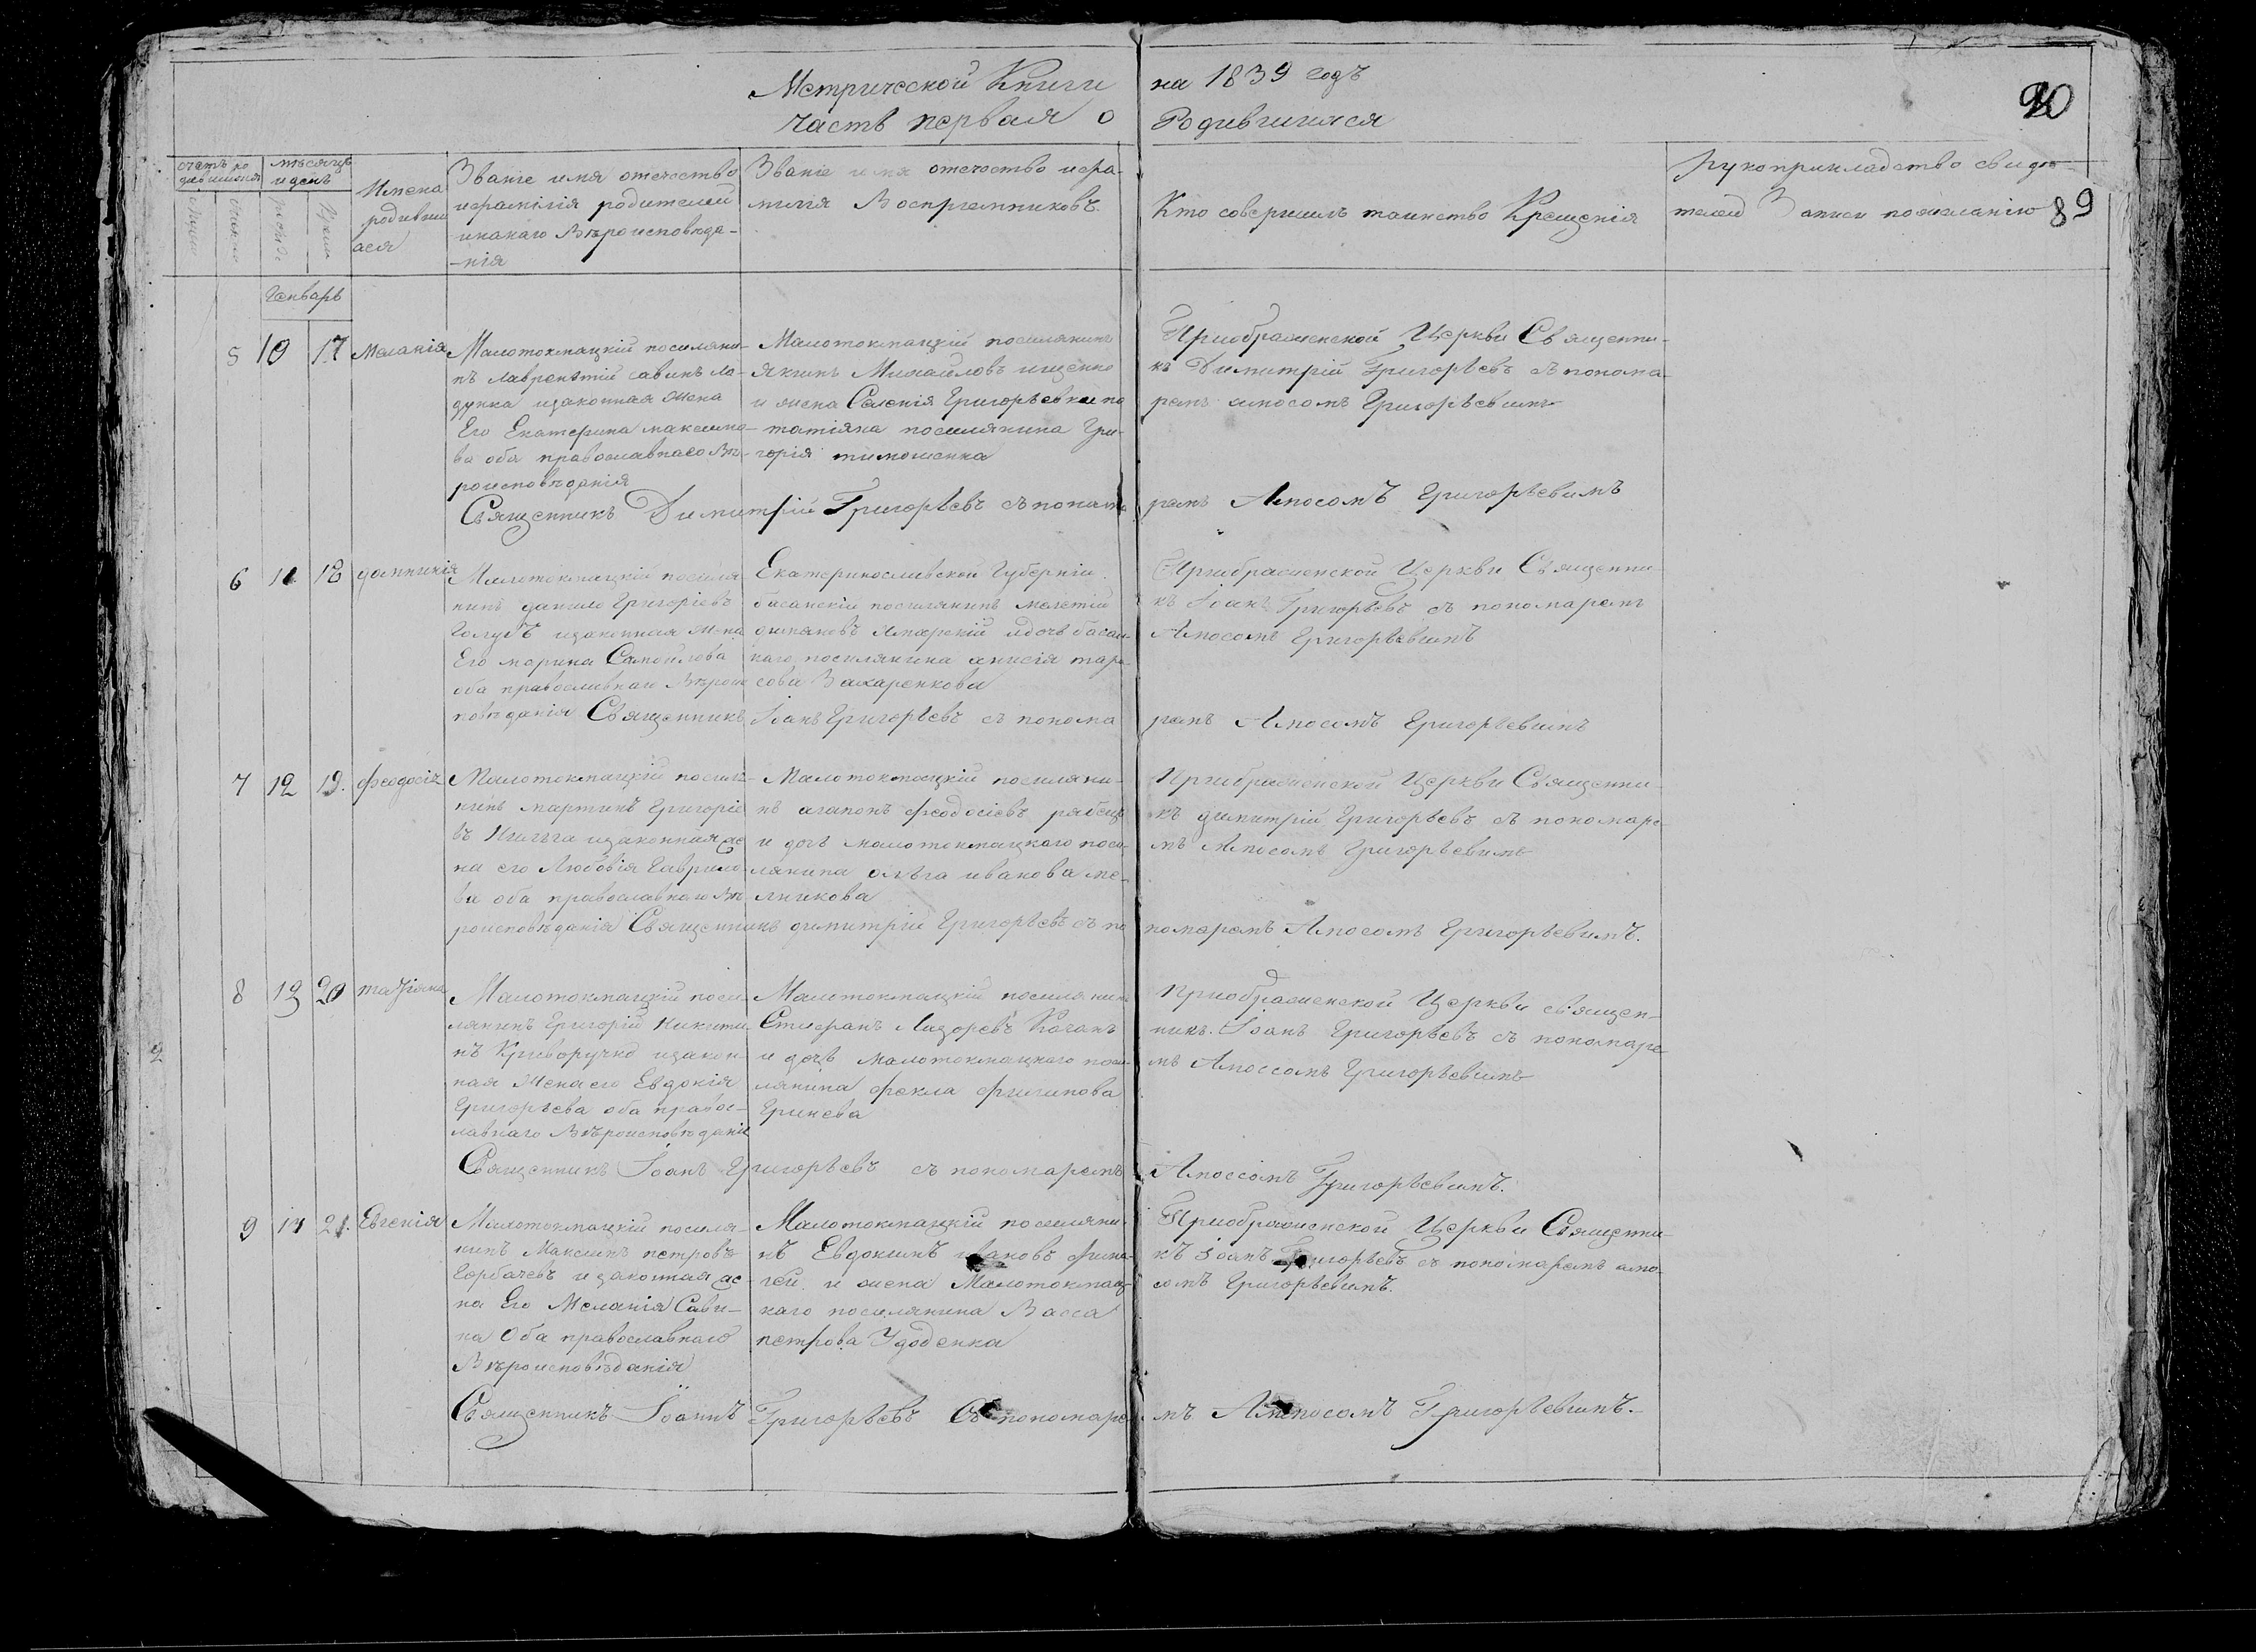 Метрической Книги на 1839 годъ
20
часть первая о Родившихся
счетъ ро
дившихся
мѣсяцъ
и день
Имена
родивши
хся
Званіе имя отечество
и фамілія родителей
и какаго Вѣроисповѣда-
-нія
Званіе имя отечество и фа-
милія Воспріемниковъ.
Кто совершилъ таинство Крещенія
Рукоприкладство свидѣ-
телей Записи по желанію
89
Генварь
5 10 17 Меланія
Малотокмацкій поселяни-
нъ Лаврентій савинъ ла-
дунка изаконная жена
Его Екатерина максимо-
ва оба православнаго Вѣ-
роисповѣданія
Малотокмацкій поселянинъ
Якимъ Михайловъ ищенко
и жена Григорьевна
татіяна поселянина Гри-
горія тимошенка
Приображенской Церкви Священни-
къ Димитрій Григорьевъ съ понома-
ремъ амосомъ Григорьевимъ
Священникъ Димитрій Григорьевъ съ понама
ремъ Амосомъ Григорьевимъ
6 11 18 домникія
Малотокмацкій поселя
нинъ данило Григоріевъ
Голубъ изаконная жена
Его марина Самойлова
оба православнаго Вѣроис
повѣданія
Екатеринославской Губерніи
басанскій поселянинъ мелетій
Ямпарскій идочь басан-
каго поселянина анисія тара-
сова Захаренкова
Приображенской Церкви Священни
къ Іоанъ Григорьевъ съ пономаремъ
Амосомъ Григорьевимъ
Священникъ Іоанъ Григорьевъ съ понома
ремъ Амосомъ Григорьевимъ
7 12 19. феодосія
Малотокмацкій поселя-
нинъ мартинъ Григоріе
въ изаконная же
на его Любовія Гаврило-
ва оба православнаго Вѣ
роисповѣданія
Малотокмацкій поселяни-
нъ агапонъ феодосіевъ рябецъ
и дочь малотокмацкаго посе-
лянина олъга иванова ме-
лникова
Приображенской Церкви Священни-
къ димитрій Григорьевъ съ пономаре-
мъ Амосомъ Григорьевимъ
Священникъ димитрій Григорьевъ съ по
номаремъ Амосомъ Григорьевимъ.
8 13 20 татіяна
Малотокмацкій посе-
лянинъ Григорій Никити
нъ Криворучко изакон-
ная жена его Евдокія
Григорьева оба правос-
лавнаго Вѣроисповѣданія
Малотокмацкій поселянинъ
Стефанъ Лазоревъ Качанъ
и дочь малотокмацкаго посе-
лянина фекла филипова
Гринева
Приображенской Церкви священ-
никъ. Іоанъ Григорьевъ съ пономаре-
мъ Амоссомъ Григорьевимъ
Священникъ Іоанъ Григорьевъ съ пономаремъ
Амоссомъ Григорьевимъ.
9 14 21. Евгенія
Малотокмацкій поселя-
нинъ Максимъ петровъ
Горбачевъ изаконная же
на Его Меланія Сави-
на Оба православнаго
Вѣроисповѣданія
Малотокмацкій поселяни-
нъ Евдокимъ ивановъ
и жена Малотокмац-
каго поселянина Васса
петрова Удоденка
Приображенской Церкви Священни-
къ Іоанъ Григорьевъ съ пономаремъ амо-
сомъ Григорьевимъ.
Священникъ Іоаннъ Григорьевъ Съ пономаре
мъ Григорьевимъ.